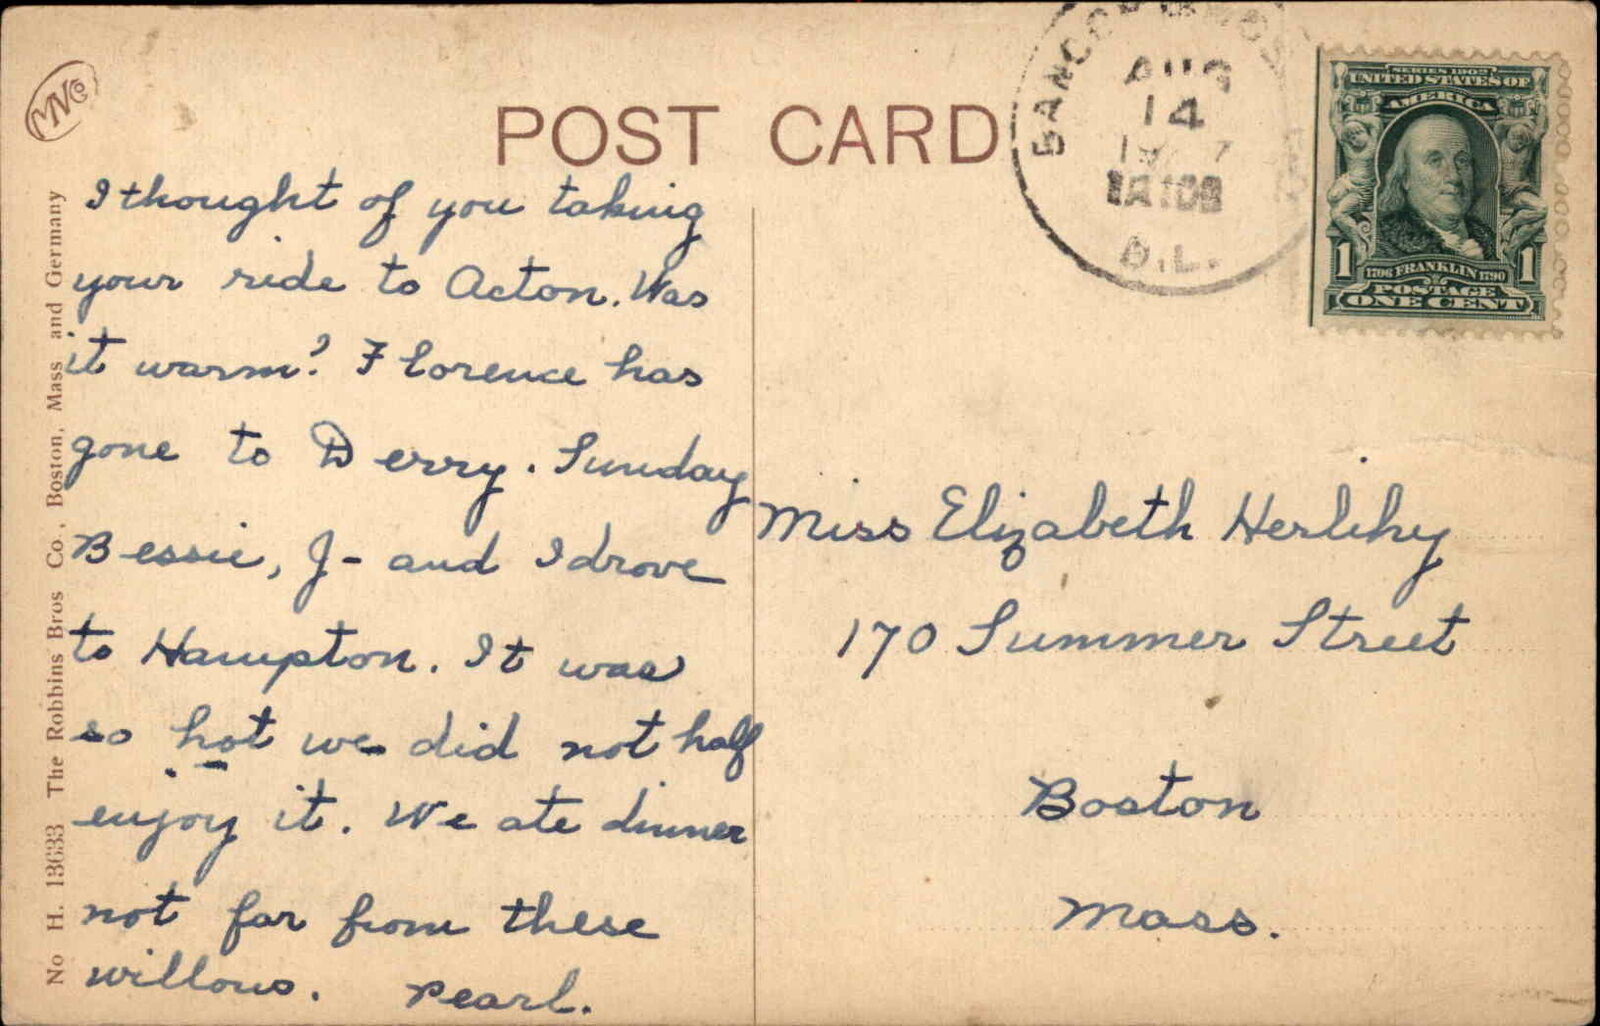 MVCo
POST CARD
AUG
14
SERIES 1902
UNITED STATES OF
AMERICA
1 1706 FRANKLIN 1790 1
POSTAGE
ONE CENT
I thought of you taking
your ride to Acton. Was
it warm? Florence has
gone to Derry. Sunday
Bessie, J- and I drove
to Hampton. It was
so hot we did not half
enjoy it. We ate dinner
not far from these
willows. Pearl.
Miss Elizabeth Herlihy
170 Summer Street
Boston
Mass.
No H. 13633 The Robbins Bros Co., Boston, Mass and Germany